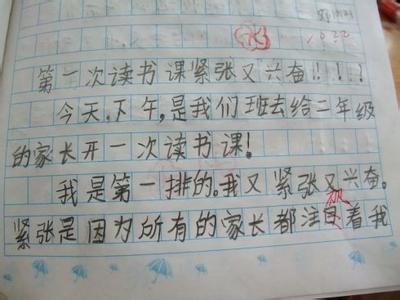 第一次读书课紧张又兴奋!!!!
今天下午,是我们班去给二年级
的家长开一次读书课!
我是第一排的。我又紧张又兴奋。
视
紧张是因为所有的家长都注目着我